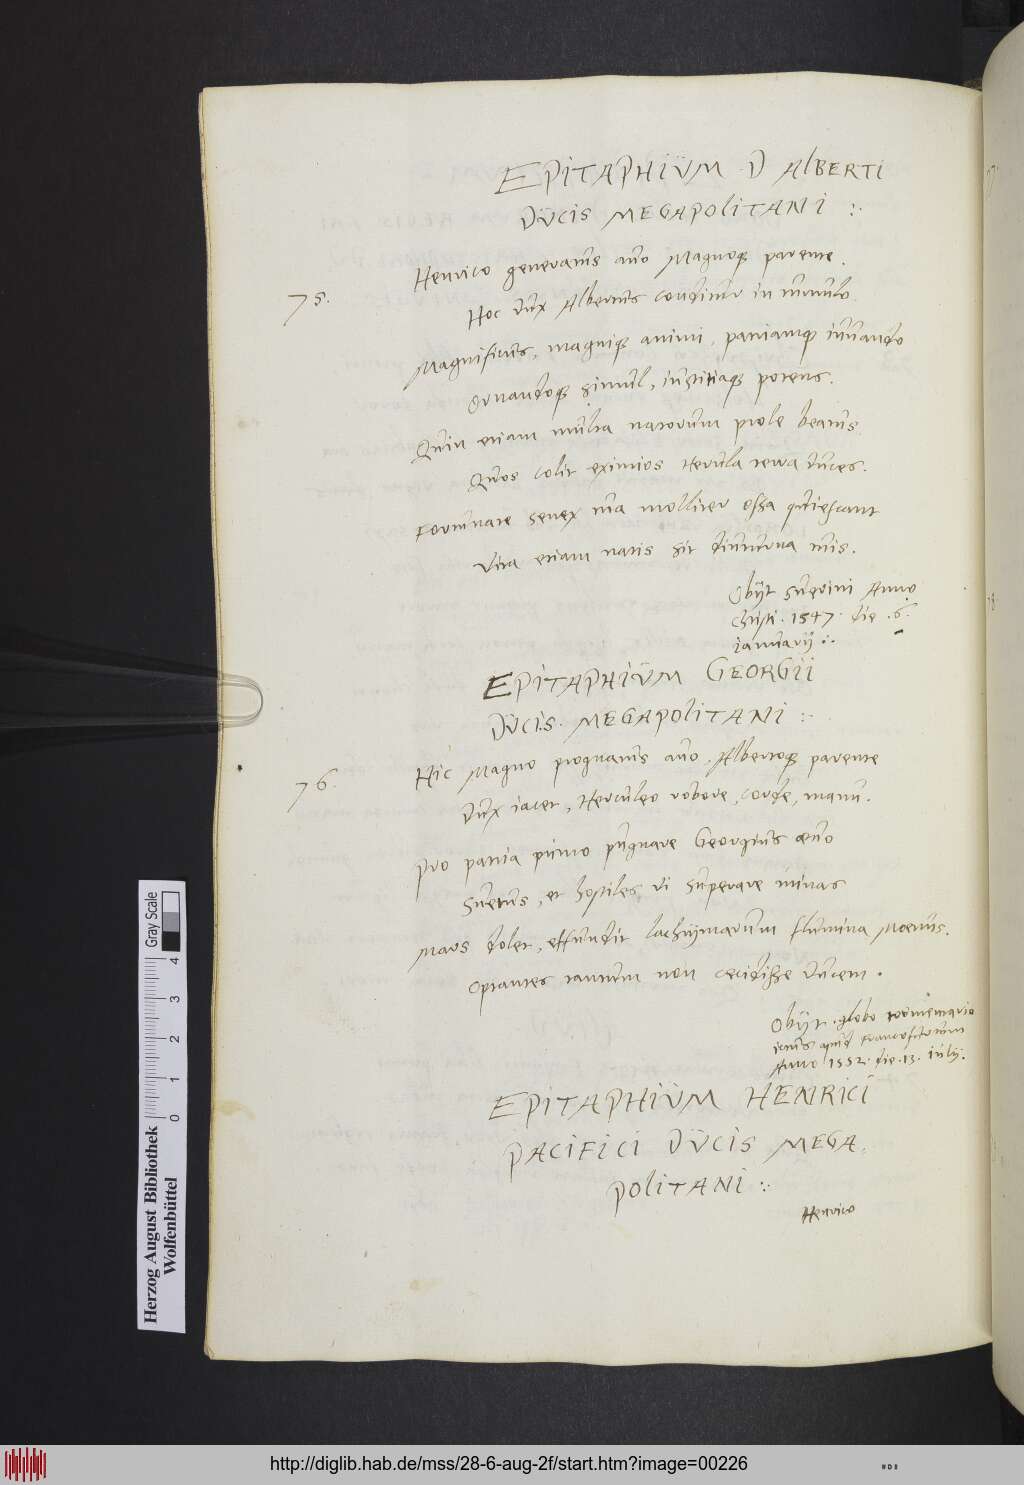 EPITAPHIUM D ALBERTI
DUCIS MEGAPOLITANI :.
75.
Henrico generatus avo Magnoque parente.
Hoc dux Albertus conditur in tumulo.
Magnificus, magnique animi, patriamque iuvando
Ornandoque simul, iustitiaque potens.
Quin etiam multa natorum prole beatus
Quos colit eximios Herula terra duces.
Fortunate senex tua molliter ossa quiescant
Vita etiam natis sit diuturna tuis.
Obijt Suerini Anno
Christi . 1547 . die . 6.
ianuarij :.
EPITAPHIUM GEORGII
DUCIS. MEGAPOLITANI :.
76.
Hic Magno prognatus avo, Albertoque parente
Dux iacet, Herculeo robore, corde, manu.
Pro patria primo pugnare Georgius aevo
Suetus, et hostiles vi superare minas
Mars dolet, effundit lachrijmarum flumina Moenus.
Optantes tantum non cecidisse ducem.
Obijt . globo tormentario
ictus apud Francofordium
Anno 1552. die. 13. iulij.
EPITAPHIUM HENRICI
PACIFICI DUCIS MEGA.
POLITANI :.
Henrico
Herzog August Bibliothek
Wolfenbüttel
Gray Scale
0 1 2 3 4
http://diglib.hab.de/mss/28-6-aug-2f/start.htm?image=00226